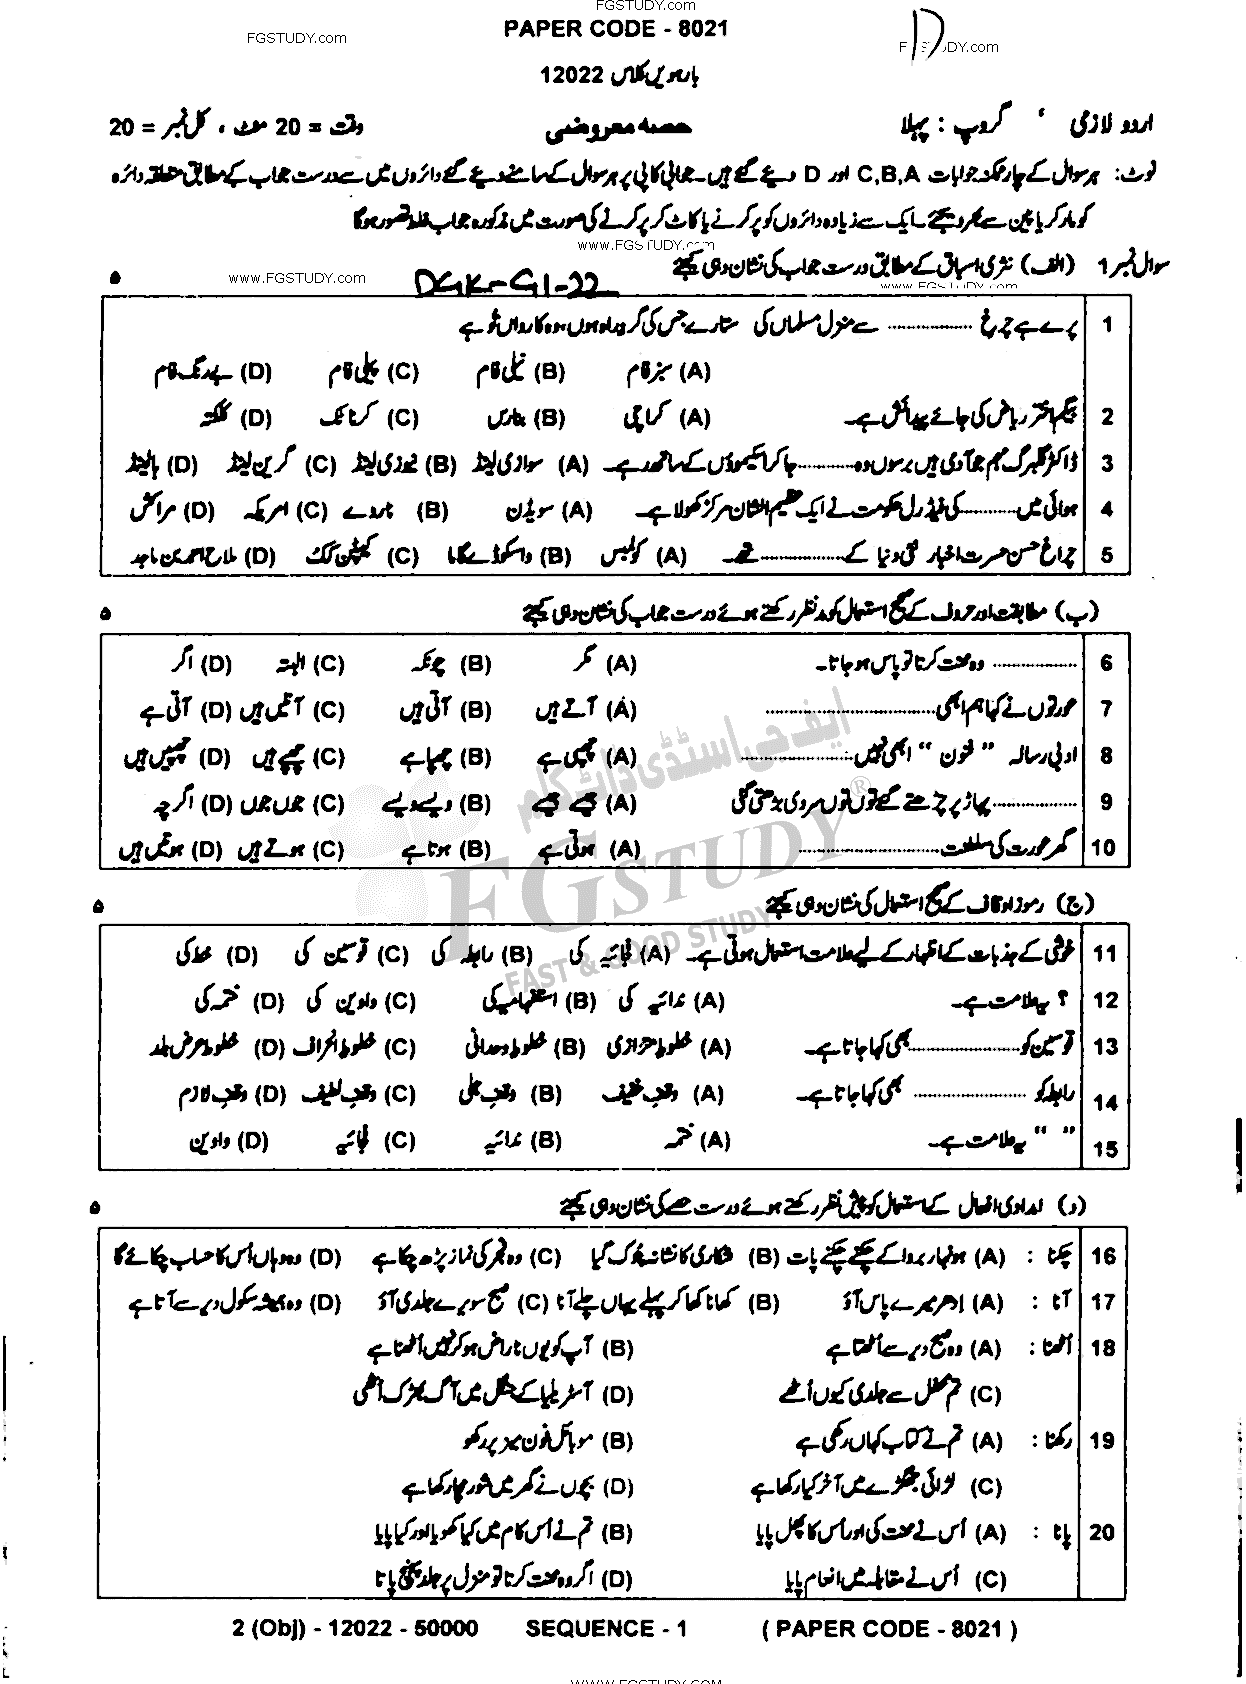 FGSTUDY.com
FGSTUDY.com
PAPER CODE - 8021
D
FGSTUDY.com
بارہویں کلاس 12022
اردو لازمی ، گروپ : پہلا حصہ معروضی وقت = 20 منٹ ، کل نمبر = 20
نوٹ: ہر سوال کے چار ممکنہ جوابات C,B,A اور D دیے گئے ہیں۔ جوابی کاپی پر ہر سوال کے سامنے دیے گئے دائروں میں سے درست جواب کے مطابق متعلقہ دائرہ
کو مارکر یا پین سے بھر دیجئے۔ ایک سے زیادہ دائروں کو پر کرنے یا کاٹ کر پر کرنے کی صورت میں مذکورہ جواب غلط تصور ہوگا
www.FGSTUDY.com
سوال نمبر 1 (الف) نثری اسباق کے مطابق درست جواب کی نشان دہی کیجئے ۵
www.FGSTUDY.com DGK-G1-22 www.FGSTUDY.com
1 پرے ہے چرخ ............ سے منزل مسلماں کی ستارے جس کی گرد راہ ہوں وہ کارواں تو ہے
(A) سبز فام (B) نیلی فام (C) پیلی فام (D) بے رنگ فام
2 بیگم اختر ریاض کی جائے پیدائش ہے۔ (A) کراچی (B) بنارس (C) کرناٹک (D) کلکتہ
3 ڈاکٹر گلبرگ مہم جو آدمی ہیں برسوں وہ ............ جا کر اسکیموؤں کے ساتھ رہے۔ (A) سوئزر لینڈ (B) نیوزی لینڈ (C) گرین لینڈ (D) ہالینڈ
4 ہوائی میں ............ کی فیڈرل حکومت نے ایک عظیم الشان مرکز کھولا ہے۔ (A) سویڈن (B) ناروے (C) امریکہ (D) مراکش
5 چراغ حسن حسرت اخباری دنیا کے ............ تھے۔ (A) کولمبس (B) واسکوڈے گاما (C) کیپٹن کک (D) ملاح احمد بن ماجد
(ب) مطابقت اور حروف کے صحیح استعمال کو مدنظر رکھتے ہوئے درست جواب کی نشان دہی کیجئے ۵
6 ............ وہ محنت کرتا تو پاس ہو جاتا۔ (A) مگر (B) چونکہ (C) البتہ (D) اگر
7 عورتوں نے کہا ہم ابھی ............ (A) آتے ہیں (B) آتی ہیں (C) آئیں ہیں (D) آتی ہے
8 ادبی رسالہ " فنون " ابھی نہیں ............ (A) چھپی ہے (B) چھپا ہے (C) چھپے ہیں (D) چھپیں ہیں
9 ............ پہاڑ پر چڑھتے گئے توں توں سردی بڑھتی گئی (A) جیسے جیسے (B) ویسے ویسے (C) جوں جوں (D) اگرچہ
10 گھر عورت کی سلطنت ............ (A) ہوتی ہے (B) ہوتا ہے (C) ہوتے ہیں (D) ہوتیں ہیں
(ج) رموز اوقاف کے صحیح استعمال کی نشان دہی کیجئے ۵
11 خوشی کے جذبات کے اظہار کے لیے علامت استعمال ہوتی ہے۔ (A) فجائیہ کی (B) رابطہ کی (C) قوسین کی (D) خط کی
12 ؟ یہ علامت ہے۔ (A) ندائیہ کی (B) استفہامیہ کی (C) واوین کی (D) ختمہ کی
13 قوسین کو ............ بھی کہا جاتا ہے۔ (A) خطوط متوازی (B) خطوط وحدانی (C) خطوط انحراف (D) خطوط عرض بلد
14 رابطہ کو ............ بھی کہا جاتا ہے۔ (A) وقف خفیف (B) وقف جلی (C) وقف لطیف (D) وقف لازم
15 " " یہ علامت ہے۔ (A) ختمہ (B) ندائیہ (C) فجائیہ (D) واوین
(د) امدادی افعال کے استعمال کو پیش نظر رکھتے ہوئے درست جملے کی نشان دہی کیجئے ۵
16 چکنا : (A) ہونہار بروا کے چکنے چکنے پات (B) شکاری کا نشانہ چوک گیا (C) وہ فجر کی نماز پڑھ چکا ہے (D) وہ وہاں اُس کا حساب چکائے گا
17 آنا : (A) ادھر میرے پاس آؤ (B) کھانا کھا کر پہلے یہاں چلے آنا (C) صبح سویرے جلدی آؤ (D) وہ ہمیشہ سکول دیر سے آتا ہے
18 اُٹھنا : (A) وہ صبح دیر سے اُٹھتا ہے (B) آپ کو یوں ناراض ہو کر نہیں اُٹھنا ہے
(C) تم محفل سے جلدی کیوں اُٹھے (D) آسٹریلیا کے جنگل میں آگ بھڑک اُٹھی
19 رکھنا : (A) تم نے کتاب کہاں رکھی ہے (B) موبائل فون میز پر رکھو
(C) لڑائی جھگڑے میں آخر کیا رکھا ہے (D) بچوں نے گھر میں شور مچا رکھا ہے
20 پانا : (A) اُس نے محنت کی اور اُس کا پھل پایا (B) تم نے اُس کام میں کیا کھویا اور کیا پایا
(C) اُس نے مقابلہ میں انعام پایا (D) اگر وہ محنت کرتا تو منزل پر جلد پہنچ پاتا
ایف جی اسٹڈی ڈاٹ کام
FGSTUDY ®
FAST & GOOD STUDY
2 (Obj) - 12022 - 50000 SEQUENCE - 1 ( PAPER CODE - 8021 )
www.FGSTUDY.com